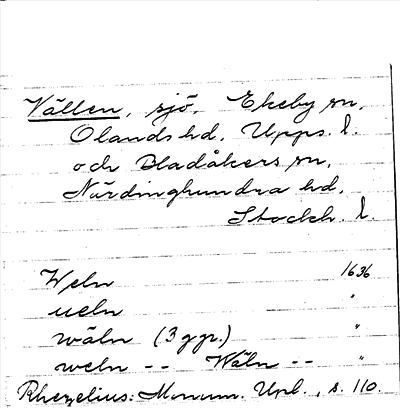 Vällen, sjö, Ekeby sn,
Olands hd, Upps. l.
och Bladåkers sn,
Närdinghundra hd,
Stockh. l.
Weln 1636
ueln "
wäln (3 ggr.) "
weln -- Wäln -- "
Rhezelius: Monum. Upl., s. 110.